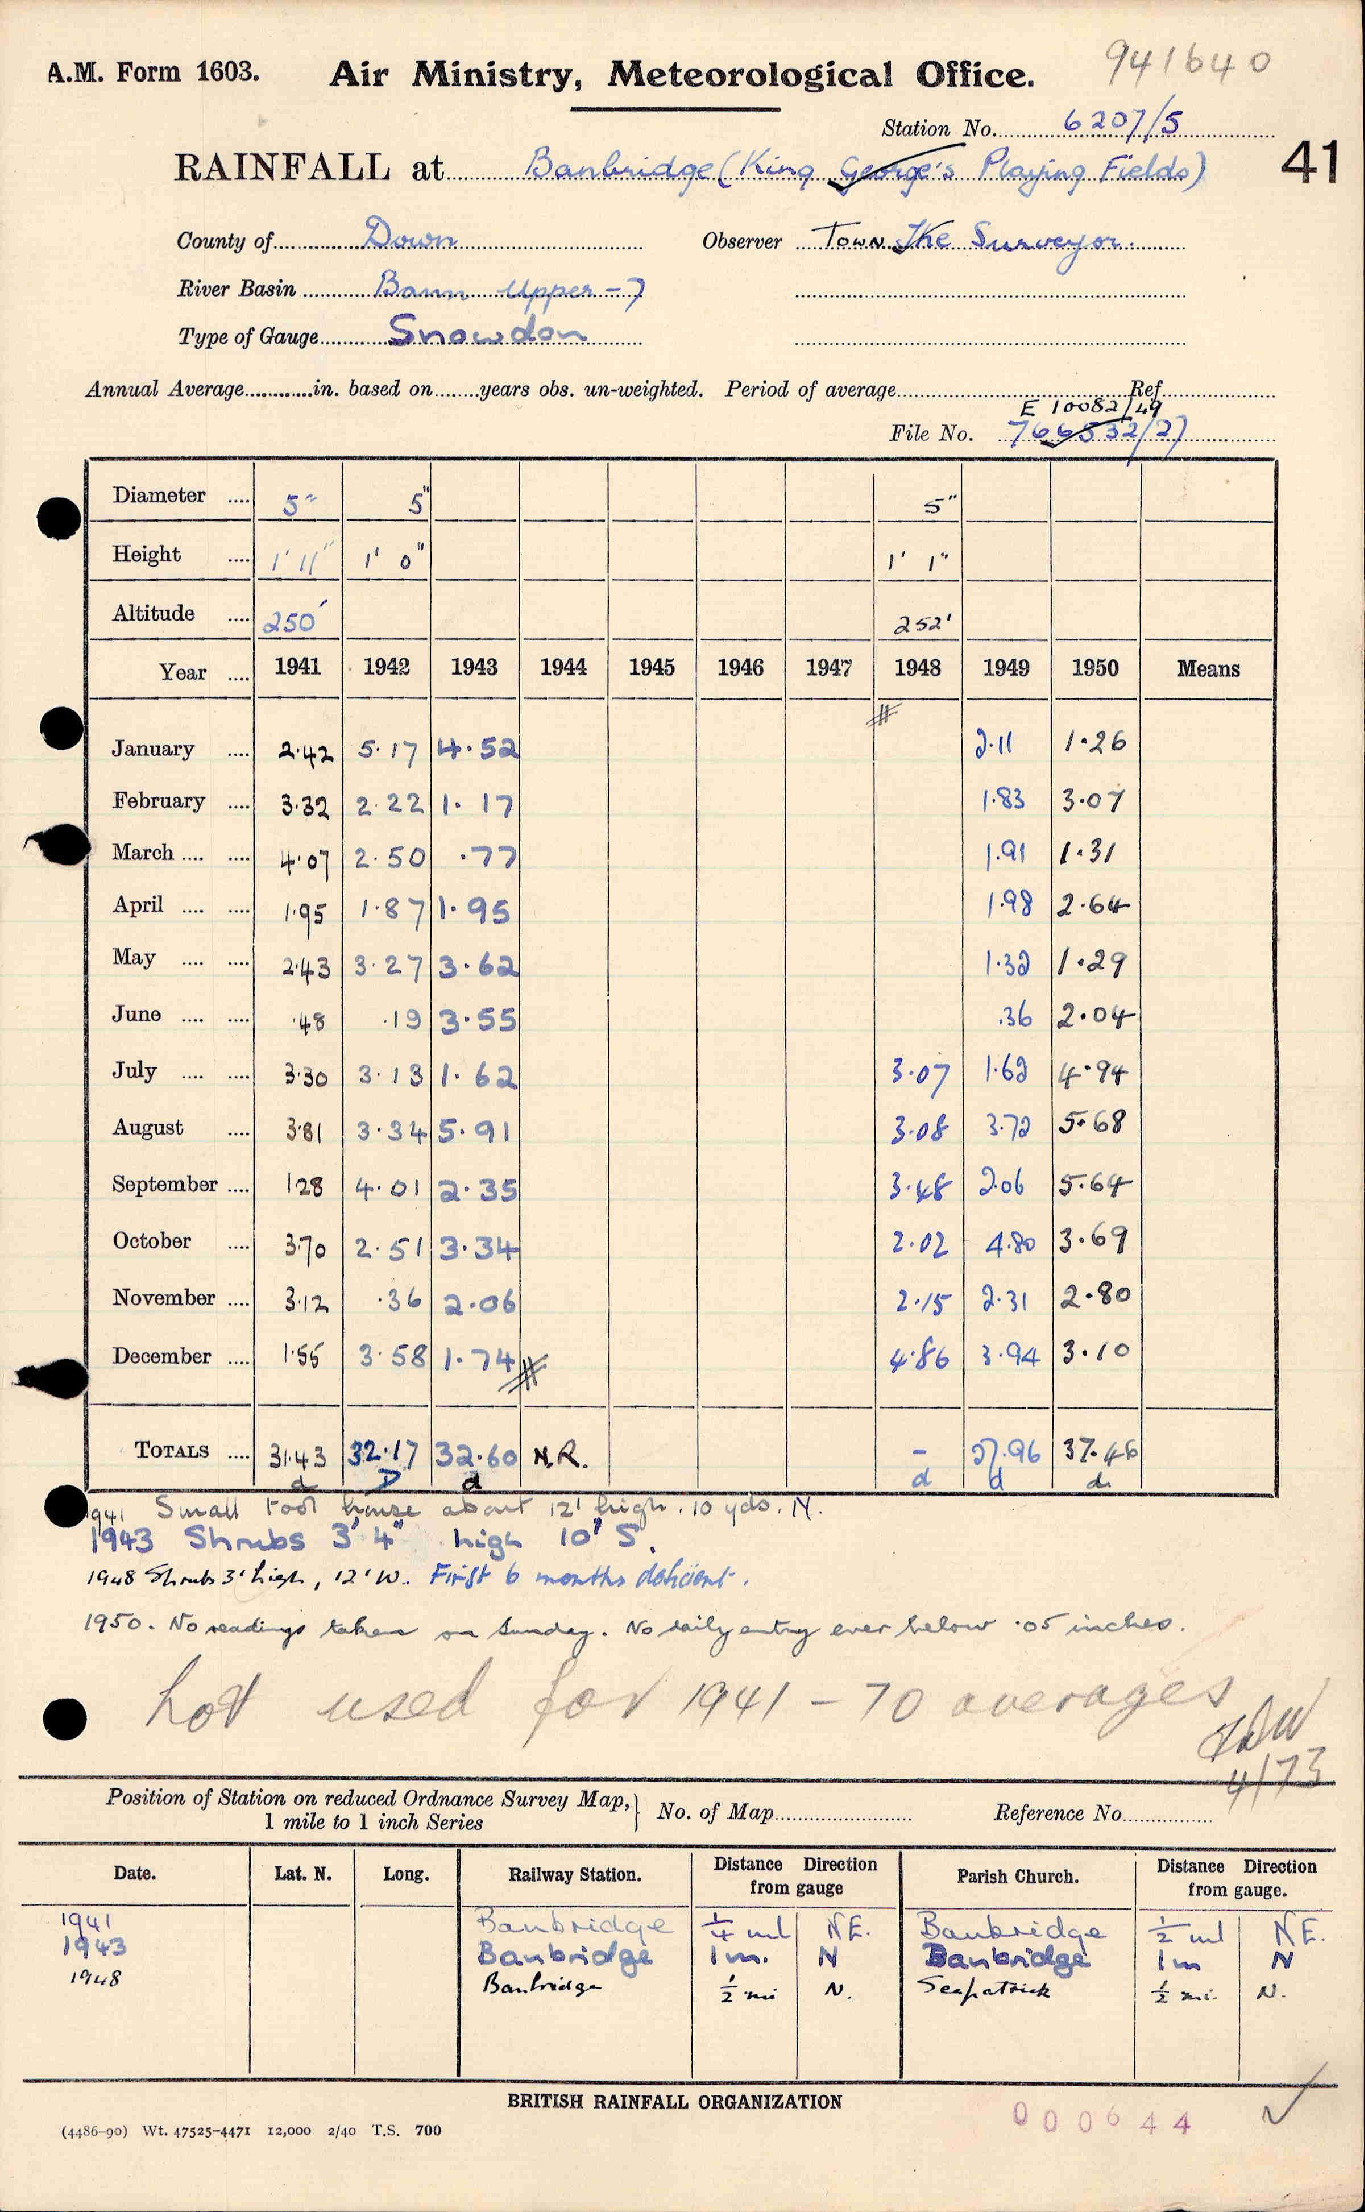 941640
A.M. Form 1603. Air Ministry, Meteorological Office.
Station No. 6207/5
41
RAINFALL at Banbridge (King George's Playing Fields)
County of Down Observer Town The Surveyor.
River Basin Bann Upper - 7
Type of Gauge Snowdon
Annual Average............in. based on........years obs. un-weighted. Period of average.............Ref.............
E 10082/49
File No. 766532/27
Diameter .... 5" 5" 5"
Height .... 1' 11" 1' 0" 1' 1"
Altitude .... 250' 252'
Year .... 1941 1942 1943 1944 1945 1946 1947 1948 1949 1950 Means
January .... 2.42 5.17 4.52 2.11 1.26
February .... 3.32 2.22 1.17 1.83 3.07
March .... .... 4.07 2.50 .77 1.91 1.31
April .... .... 1.95 1.87 1.95 1.98 2.64
May .... .... 2.43 3.27 3.62 1.32 1.29
June .... .... .48 .19 3.55 .36 2.04
July .... .... 3.30 3.13 1.62 3.07 1.62 4.94
August .... 3.81 3.34 5.91 3.08 3.72 5.68
September .... 1.28 4.01 2.35 3.48 2.06 5.64
October .... 3.70 2.51 3.34 2.02 4.80 3.69
November .... 3.12 .36 2.06 2.15 2.31 2.80
December .... 1.55 3.58 1.74 4.86 3.94 3.10
TOTALS .... 31.43 32.17 32.60 N.R. - 27.96 37.46
d D d d d d
1941 Small tool house about 12' high. 10 yds. N.
1943 Shrubs 3' 4" high 10' S.
1948 Shrubs 3' high, 12' W. First 6 months deficient.
1950. No readings taken on Sunday. No daily entry ever below .05 inches.
Not used for 1941 - 70 averages
4/73
Position of Station on reduced Ordnance Survey Map, 1 mile to 1 inch Series No. of Map............ Reference No............
Date. Lat. N. Long. Railway Station. Distance Direction from gauge Parish Church. Distance Direction from gauge.
1941 Banbridge 1/4 ml NE. Banbridge 1/2 ml NE.
1943 Banbridge 1m. N Banbridge 1m N
1948 Banbridge 1/2 mi N. Seapatrick 1/2 mi. N.
BRITISH RAINFALL ORGANIZATION
(4486-90) Wt. 47525-4471 12,000 2/40 T.S. 700
000644